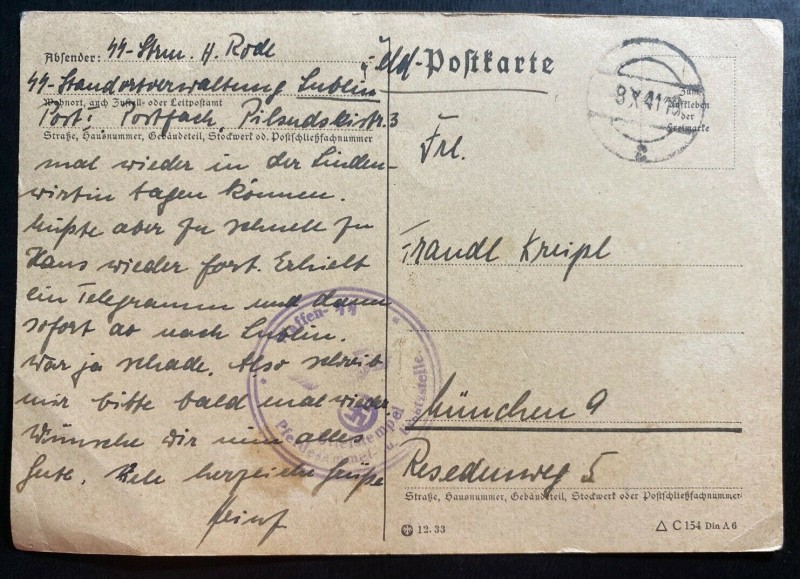 Absender: SS-Strm. H. Rode
SS-Standortverwaltung Lublin
Wohnort, auch Zustell- oder Leitpostamt
Post: Postfach, Pilsudskistr. 3
Straße, Hausnummer, Gebäudeteil, Stockwerk od. Postschließfachnummer
mal wieder in der Linden-
wirtin tagen können.
Mußte aber zu schnell zu
Haus wieder fort. Erhielt
ein Telegramm und dann
sofort ab nach Lublin.
War ja schade. Also schreib
mir bitte bald mal wieder
Wünsche dir nun alles
Gute. Viele herzliche Grüße
Heinz
Feld-Postkarte
8.X.41
Zum
Aufkleben
der
Freimarke
Frl.
Traudl Kreipl
München 9
Resedenweg 5
Straße, Hausnummer, Gebäudeteil, Stockwerk oder Postschließfachnummer
12.33
C 154 Din A 6
Waffen-SS